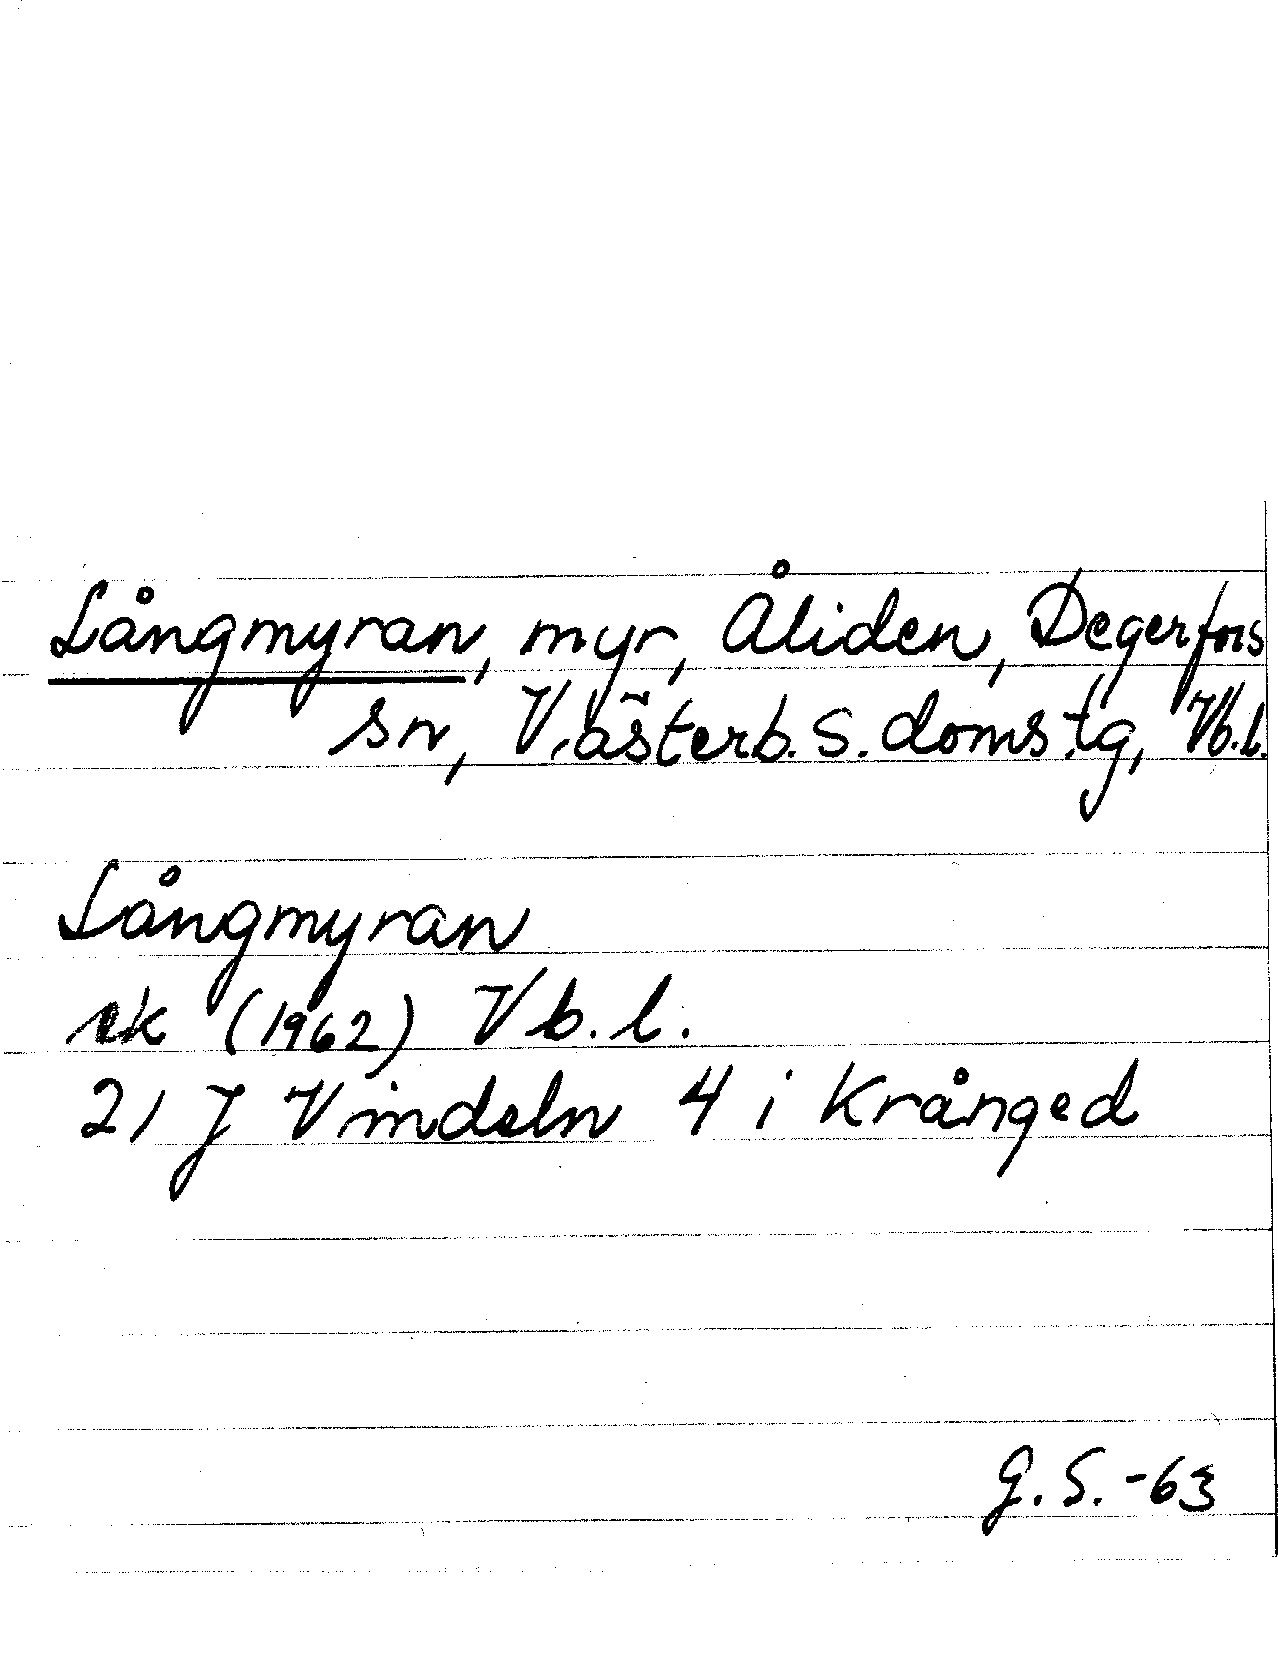 Långmyran, myr, Åliden, Degerfors
sn, Västerb. S. domstg, Vb.l.
Långmyran
ek (1962) Vb.l.
21 J Vindeln 4 i Krånged
G.S.-63